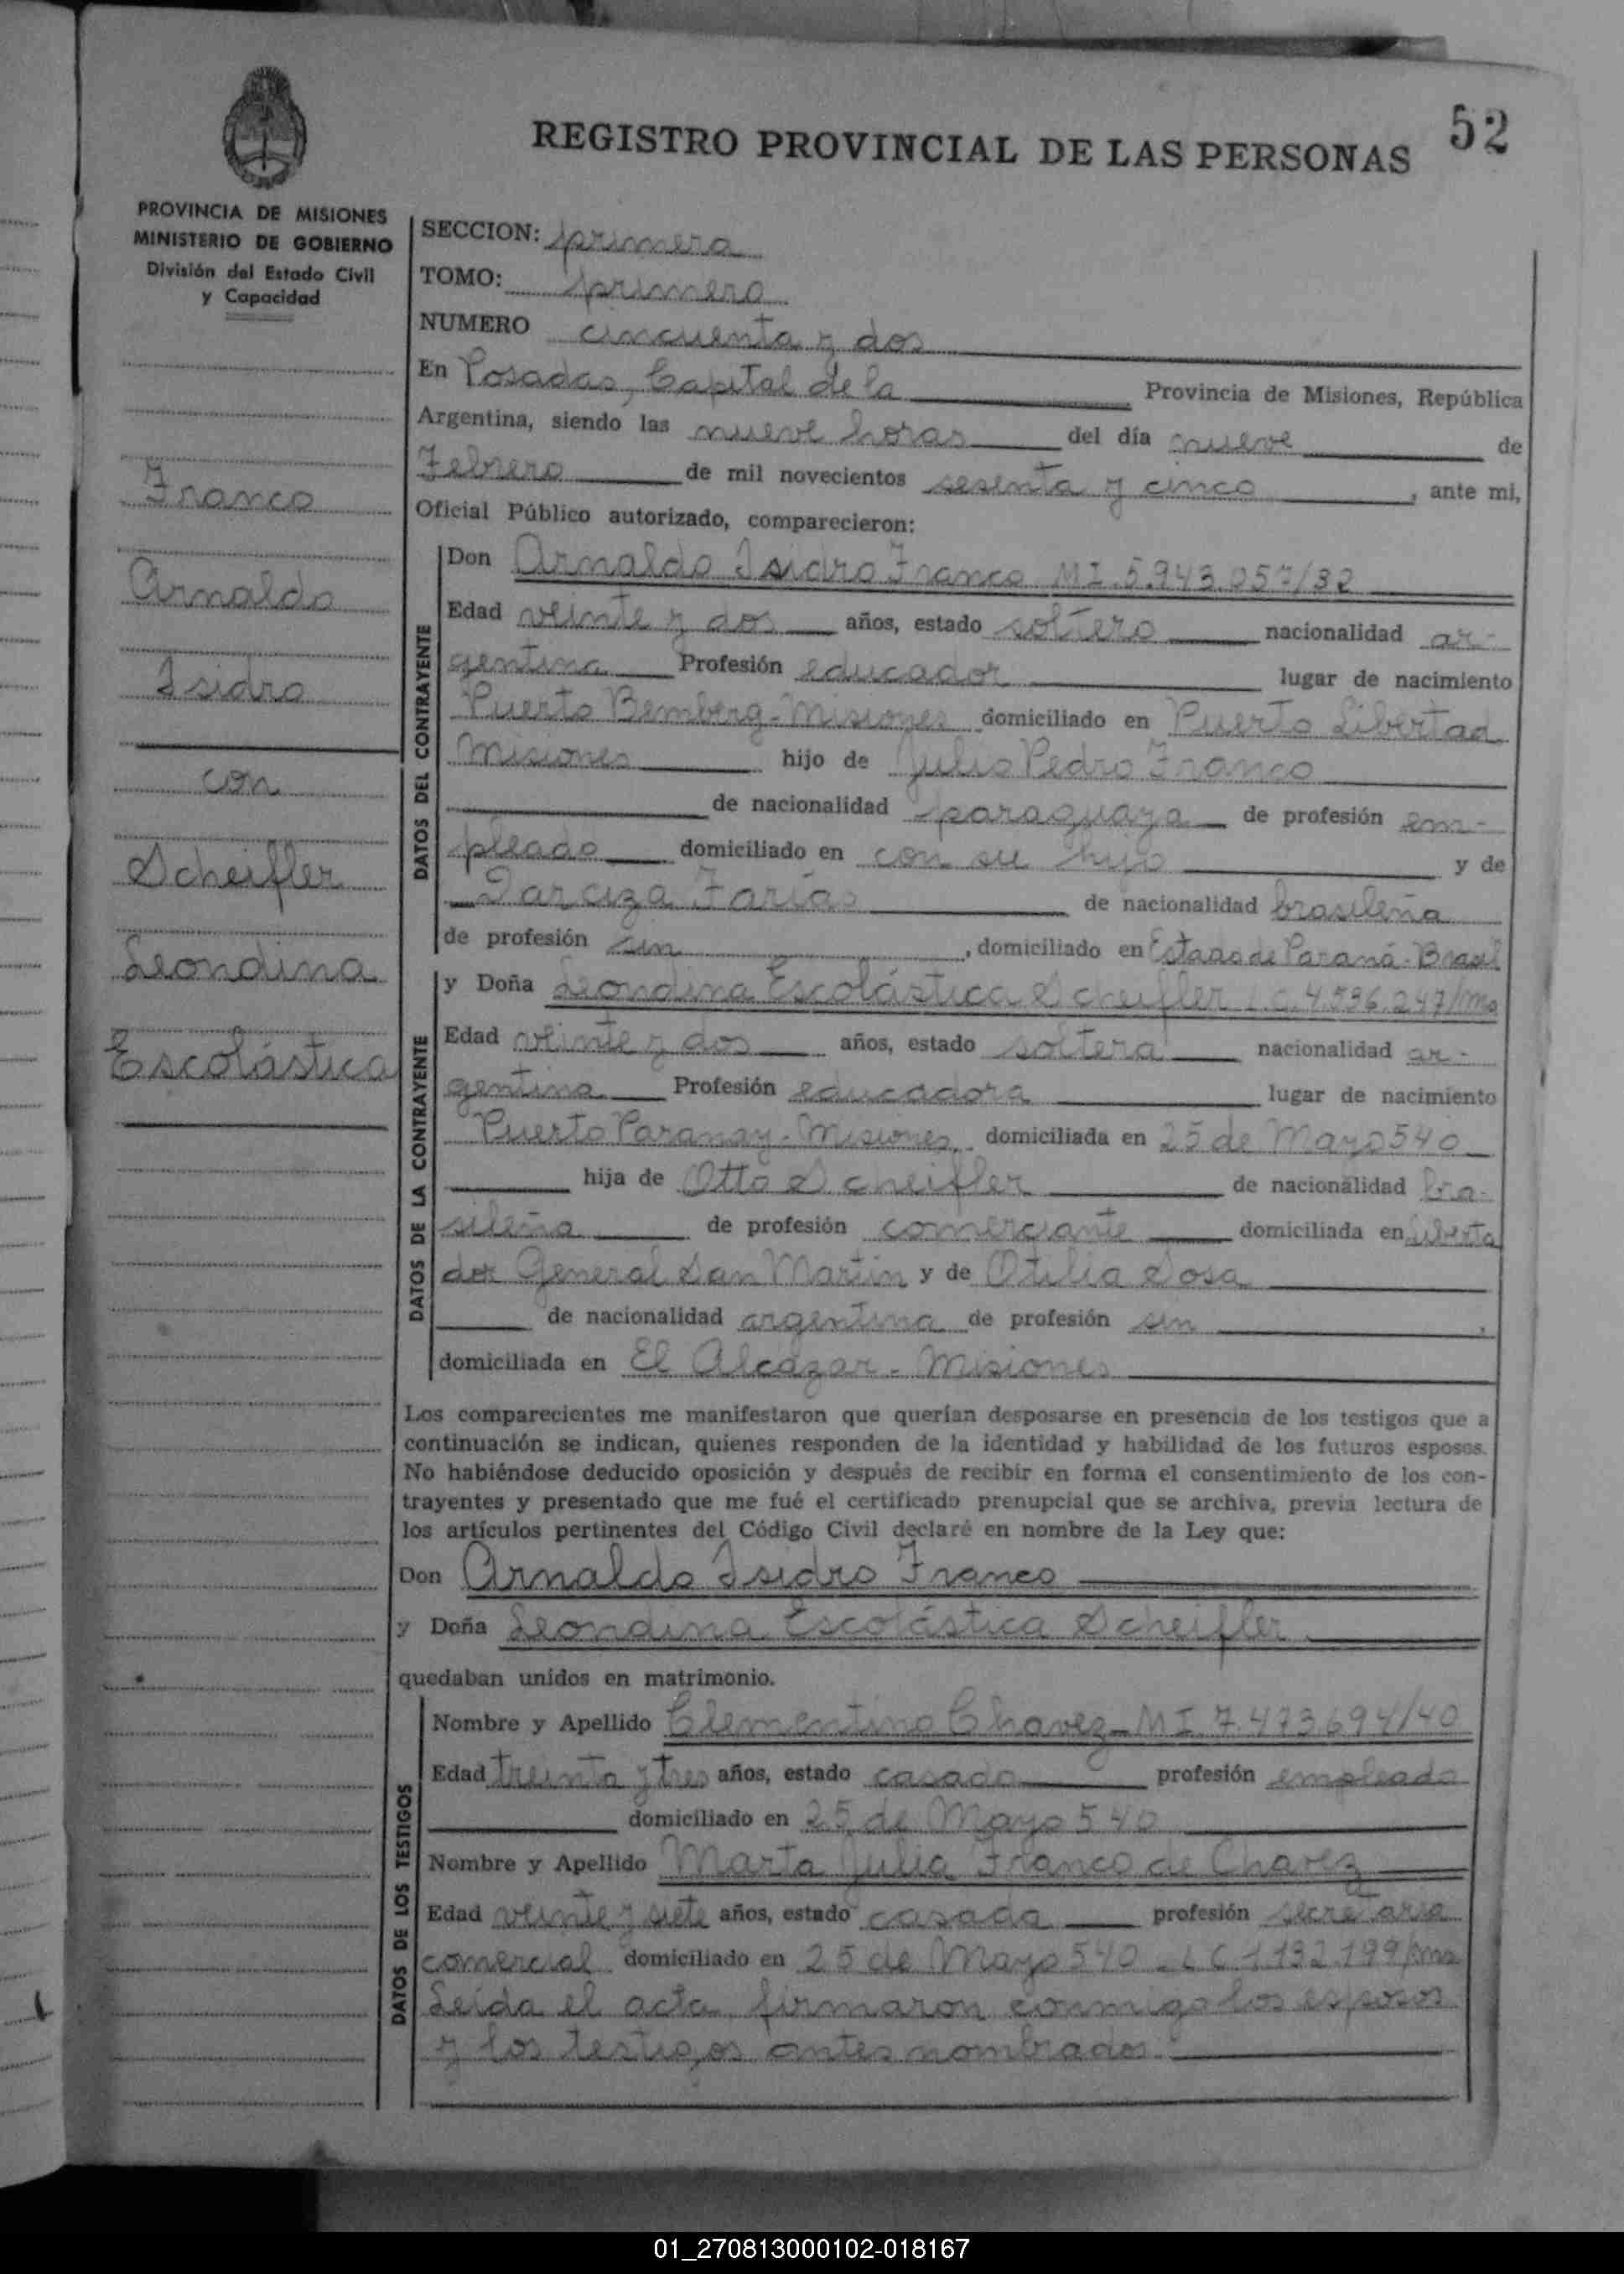 52
REGISTRO PROVINCIAL DE LAS PERSONAS
PROVINCIA DE MISIONES
MINISTERIO DE GOBIERNO
División del Estado Civil
y Capacidad
Franco
Arnaldo
Isidro
con
Scheifler
Leondina
Escolástica
SECCION: primera
TOMO: primero
NUMERO cincuenta y dos
En Posadas, Capital de la Provincia de Misiones, República
Argentina, siendo las nueve horas del día nueve de
Febrero de mil novecientos sesenta y cinco, ante mi,
Oficial Público autorizado, comparecieron:
DATOS DEL CONTRAYENTE
Don Arnaldo Isidro Franco MI.5.943.057/32
Edad veinte y dos años, estado soltero nacionalidad ar-
gentina Profesión educador lugar de nacimiento
Puerto Bemberg-Misiones domiciliado en Puerto Libertad
Misiones hijo de Julio Pedro Franco
de nacionalidad paraguaya de profesión em-
pleado domiciliado en con su hijo y de
Tarciza Farias de nacionalidad brasileña
de profesión sin, domiciliado en Estado de Paraná-Brasil
DATOS DE LA CONTRAYENTE
y Doña Leondina Escolástica Scheifler L.C.4.596.247/Ms
Edad veinte y dos años, estado soltera nacionalidad ar-
gentina Profesión educadora lugar de nacimiento
Puerto Paranay-Misiones, domiciliada en 25 de Mayo 540
hija de Otto Scheifler de nacionalidad bra-
sileña de profesión comerciante domiciliada en Liberta
dor General San Martin y de Otilia Sosa
de nacionalidad argentina de profesión sin,
domiciliada en El Alcázar-Misiones
Los comparecientes me manifestaron que querían desposarse en presencia de los testigos que a
continuación se indican, quienes responden de la identidad y habilidad de los futuros esposos.
No habiéndose deducido oposición y después de recibir en forma el consentimiento de los con-
trayentes y presentado que me fué el certificado prenupcial que se archiva, previa lectura de
los artículos pertinentes del Código Civil declaré en nombre de la Ley que:
Don Arnaldo Isidro Franco
y Doña Leondina Escolástica Scheifler
quedaban unidos en matrimonio.
DATOS DE LOS TESTIGOS
Nombre y Apellido Clementino Chavez-MI.7.473.694/40
Edad treinta y tres años, estado casado profesión empleado
domiciliado en 25 de Mayo 540
Nombre y Apellido Marta Julia Franco de Chavez
Edad veinte y siete años, estado casada profesión secretaria
comercial domiciliado en 25 de Mayo 540-LC 1.132.199/Ms
Leída el acta, firmaron conmigo los esposos
y los testigos antes nombrados.
01_270813000102-018167